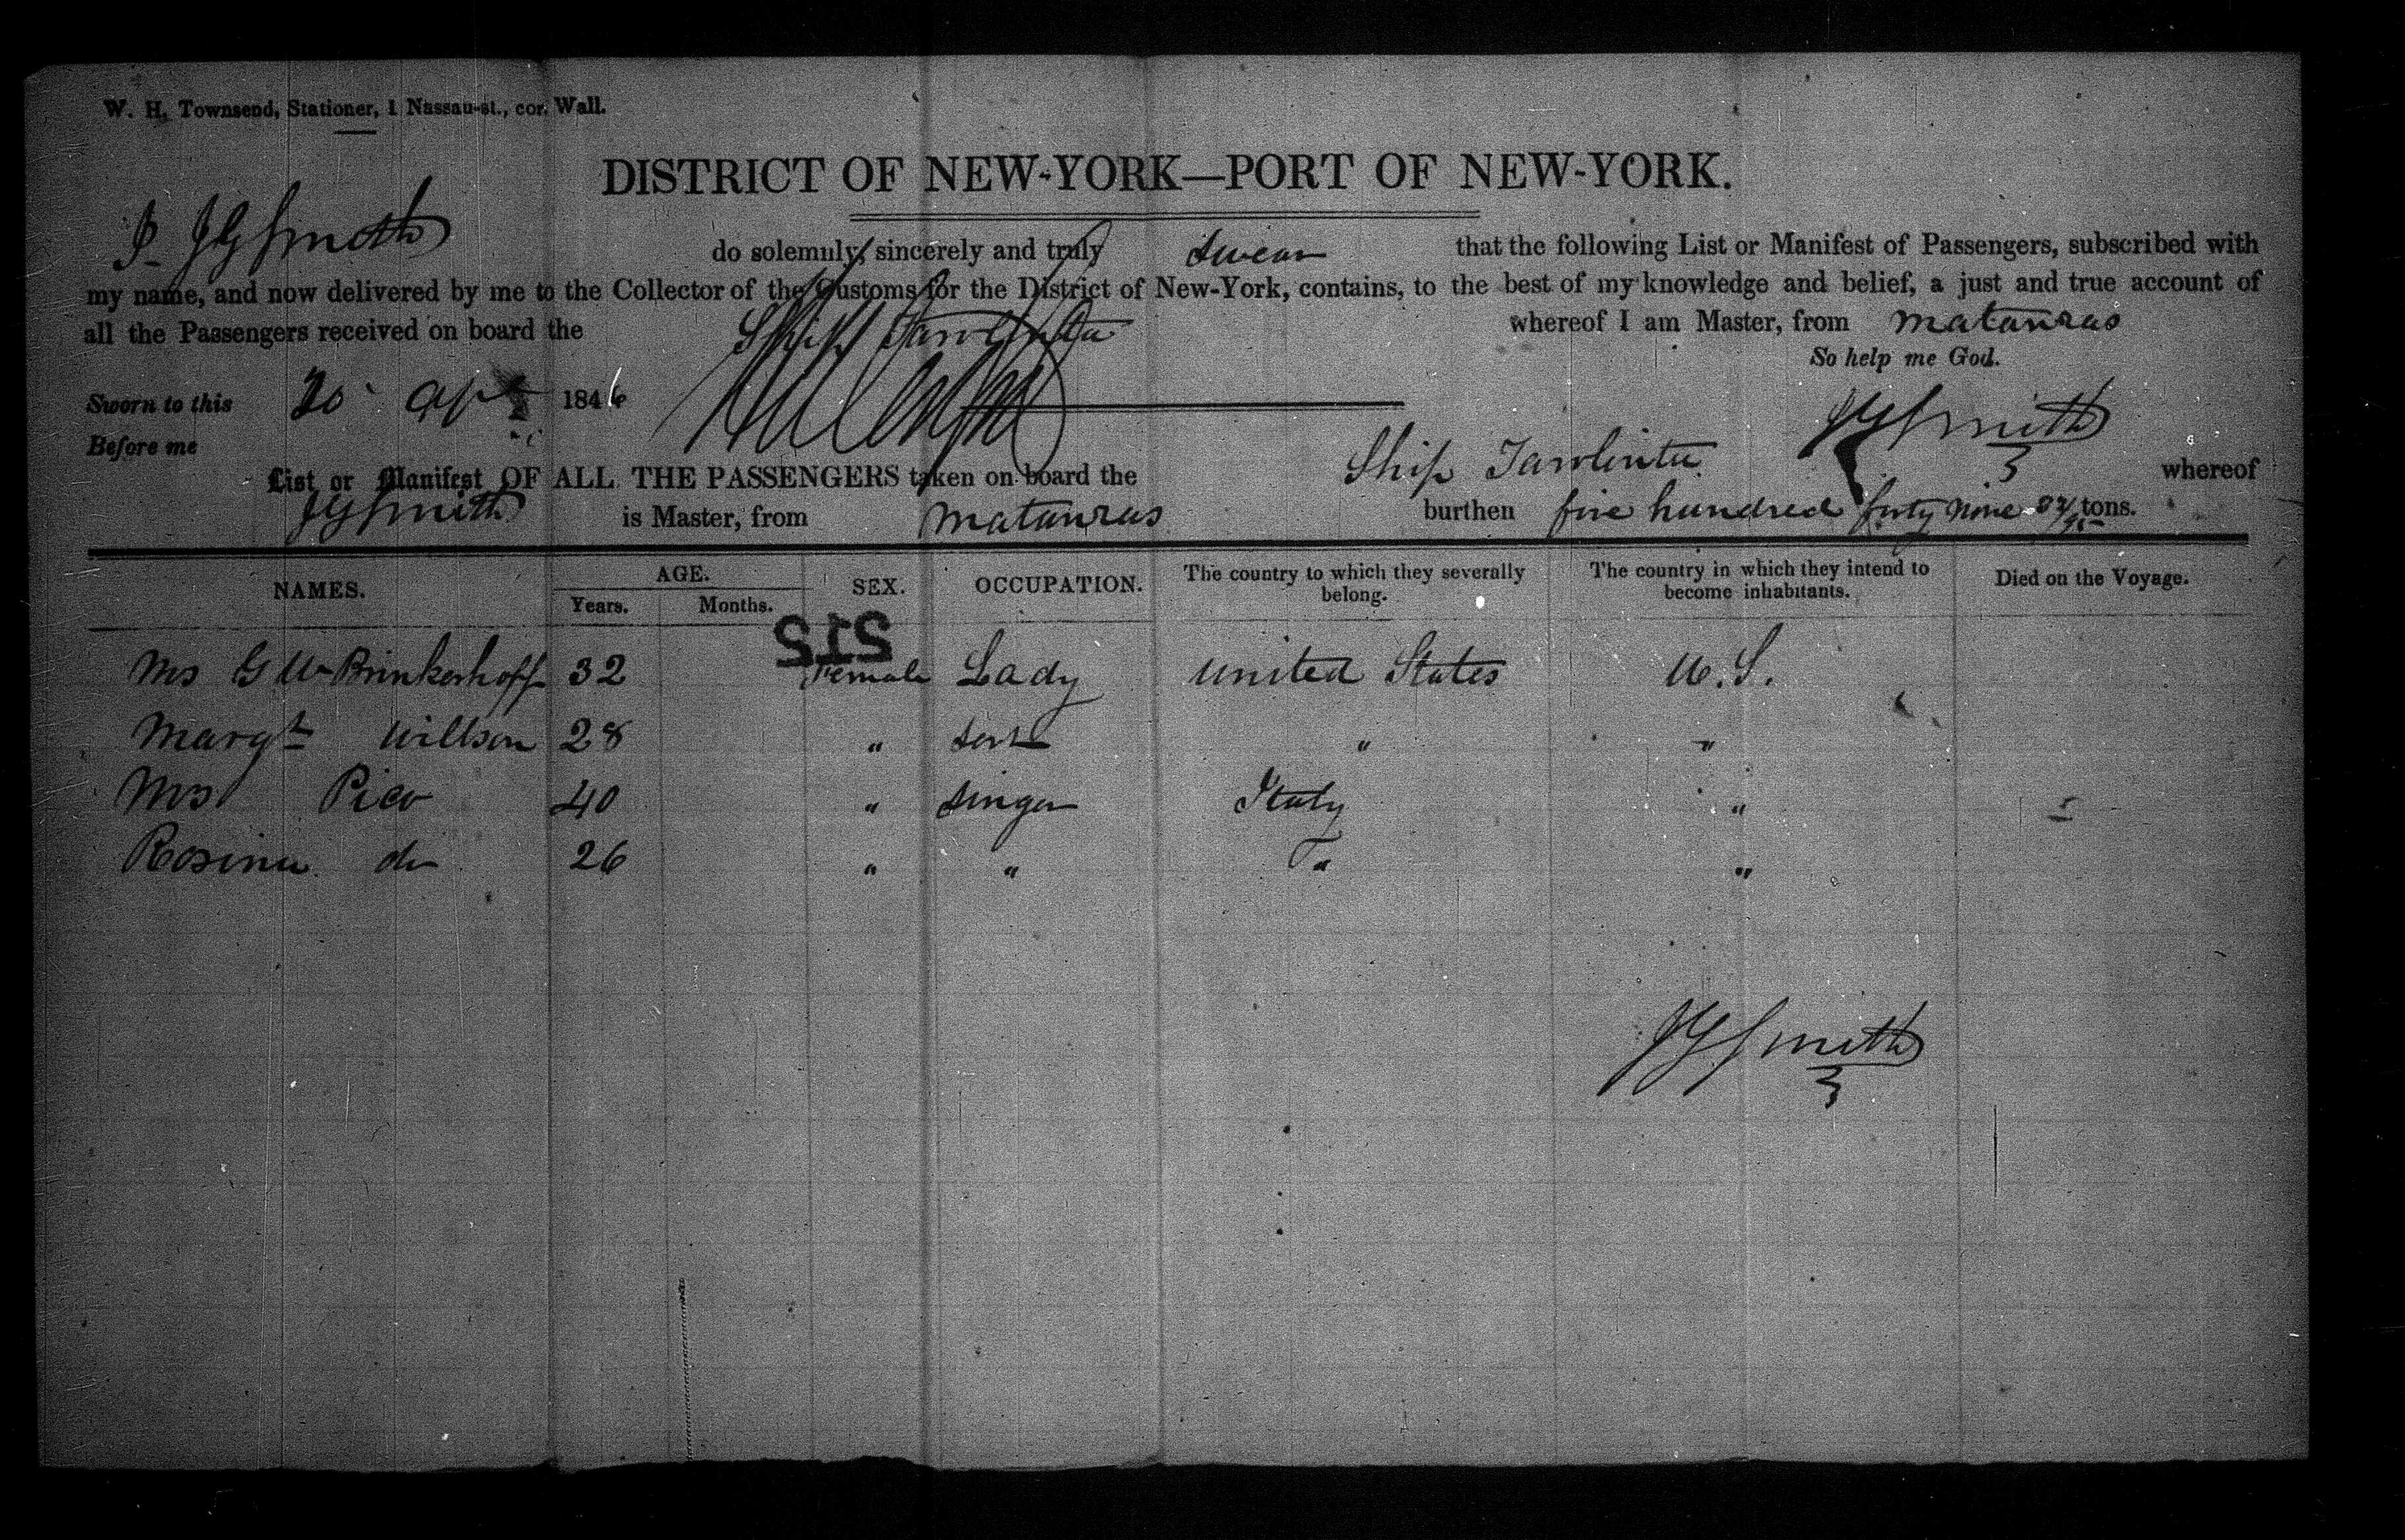 W. H. Townsend, Stationer, 1 Nassau-st., cor. Wall.
DISTRICT OF NEW-YORK—PORT OF NEW-YORK.
I JG Smith do solemnly, sincerely and truly swear that the following List or Manifest of Passengers, subscribed with
my name, and now delivered by me to the Collector of the Customs for the District of New-York, contains, to the best of my knowledge and belief, a just and true account of
all the Passengers received on board the Ship whereof I am Master, from Matanzas
So help me God.
Sworn to this 20 Apl 1846
Before me
JG Smith
List or Manifest OF ALL THE PASSENGERS taken on board the Ship whereof
JG Smith is Master, from Matanzas burthen five hundred forty nine tons.
NAMES. AGE. SEX. OCCUPATION. The country to which they severally belong. The country in which they intend to become inhabitants. Died on the Voyage.
Years. Months.
515
Mrs G W Brinkerhoff 32 Female Lady United States U.S.
Margt Willson 28 " " "
Mrs Pico 40 " Singer Italy "
Rosina do 26 " " " "
JG Smith